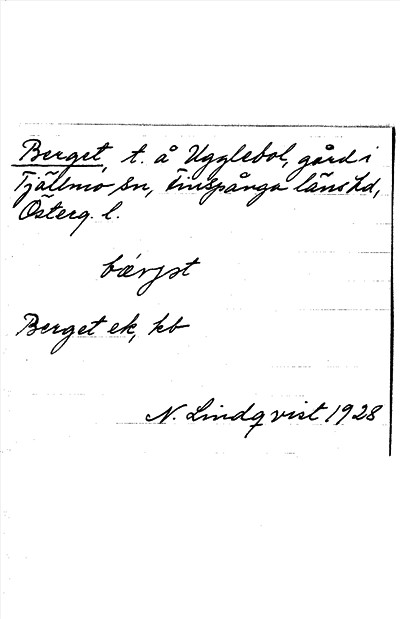 Berget, t. å Ugglebol, gård i
Tjällmo sn, Finspånga läns hd,
Österg. l.
bærjet
Berget ek, kb
N. Lindqvist 1928